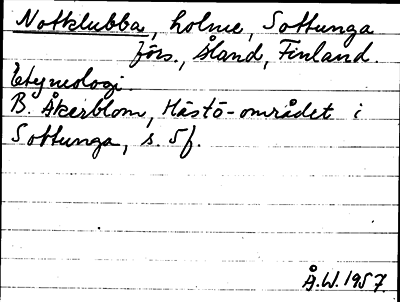 Notklubba, holme, Sottunga
förs., Åland, Finland.
Etymologi.
B. Åkerblom, Hästö-området i
Sottunga, s. 5f.
Å.W. 1957.